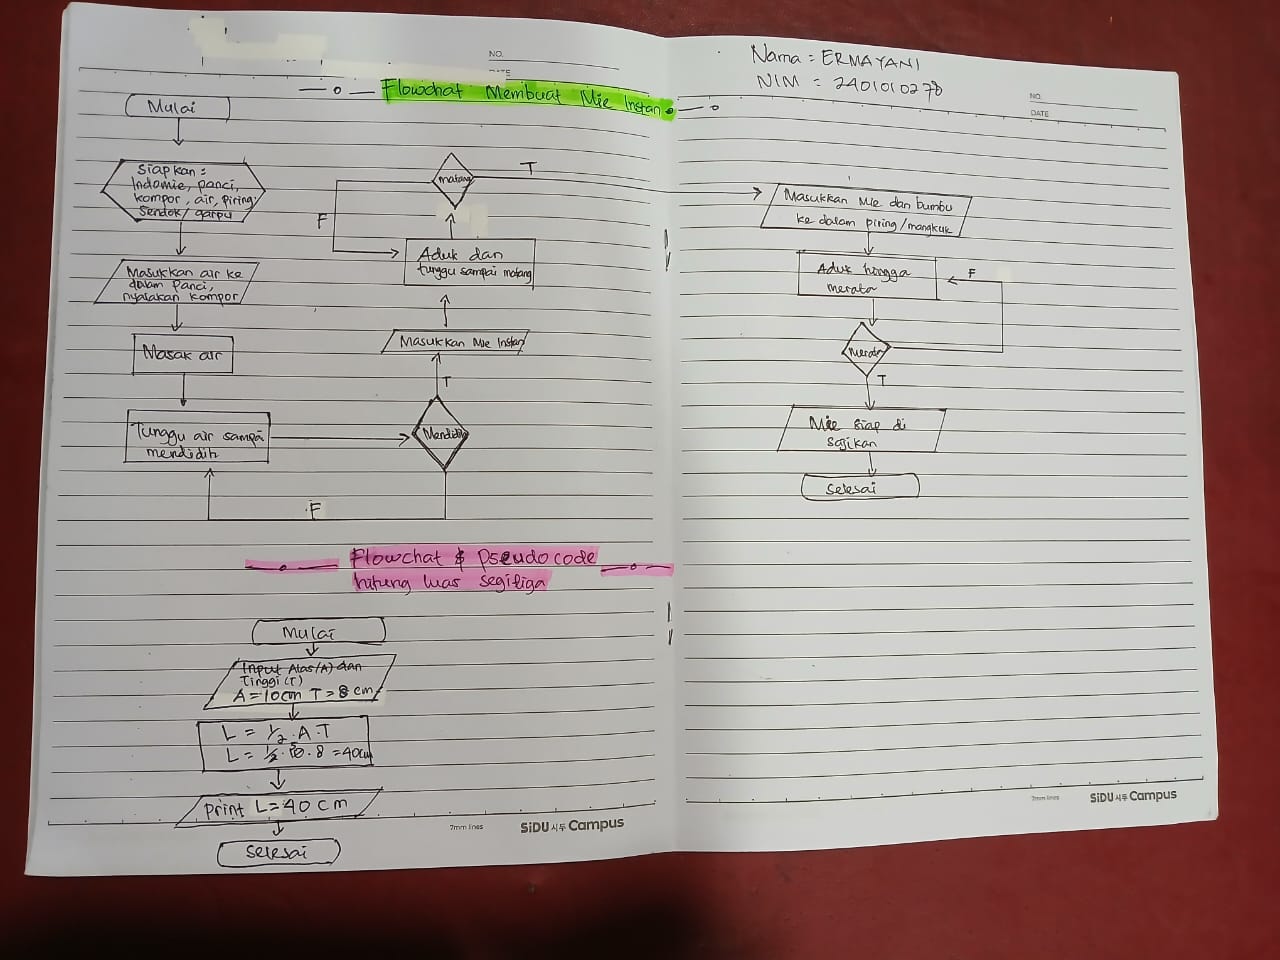 NO.
DATE
Flowchat Membuat Mie Instan
Mulai
Siapkan :
Indomie, panci,
kompor, air, piring
Sendok/ garpu
Masukkan air ke
dalam Panci,
nyalakan kompor
Masak air
Tunggu air sampai
mendidih
F
Mendidih
T
Masukkan Mie Instan
Aduk dan
tunggu sampai matang
F
matang
T
Flowchat & Pseudocode
hitung luas segitiga
Mulai
Input Alas(A) dan
Tinggi (T)
A = 10 cm T = 8 cm
L = 1/2 . A . T
L = 1/2 . 10 . 8 = 40cm
print L = 40 cm
Selesai
7mm lines
SiDU 시두 Campus
Nama = ERMAYANI
NIM = 2401010278
NO.
DATE
Masukkan Mie dan bumbu
ke dalam piring/mangkuk
Aduk hingga
merata
F
Merata
T
Mie siap di
sajikan
Selesai
7mm lines
SiDU 시두 Campus